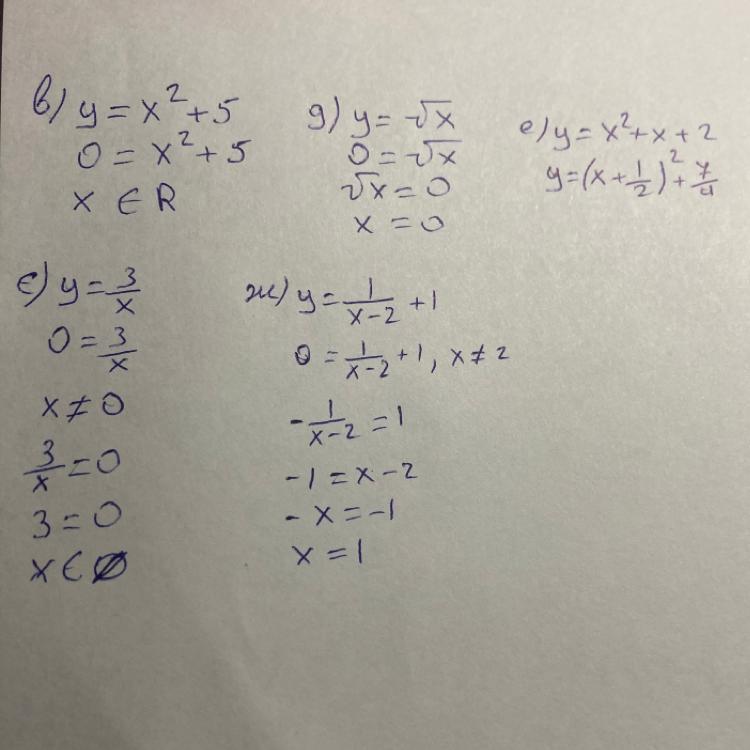 в) y = x² + 5
0 = x² + 5
x ∈ R
д) y = √x
0 = √x
√x = 0
x = 0
е) y = x² + x + 2
y = (x + 1/2)² + 7/4
є) y = 3/x
0 = 3/x
x ≠ 0
3/x = 0
3 = 0
x ∈ ∅
ж) y = 1/(x-2) + 1
0 = 1/(x-2) + 1, x ≠ 2
-1/(x-2) = 1
-1 = x - 2
-x = -1
x = 1